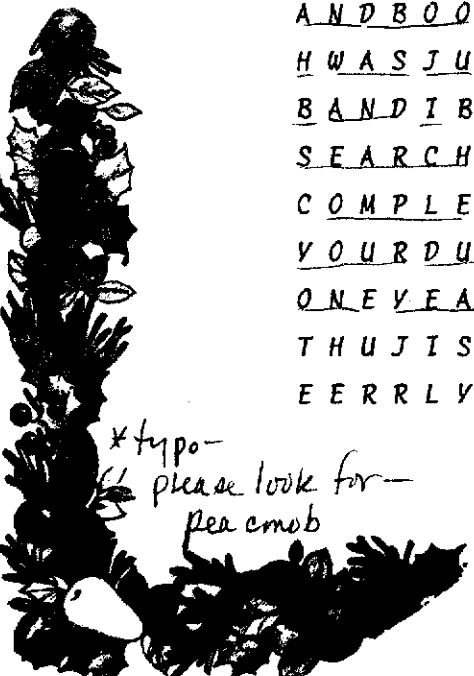 A N D B O O
H W A S J U
B A N D I B
S E A R C H
C O M P L E
Y O U R D U
O N E Y E A
T H U J I S
E E R R L Y
* typo —
please look for —
pea cmob